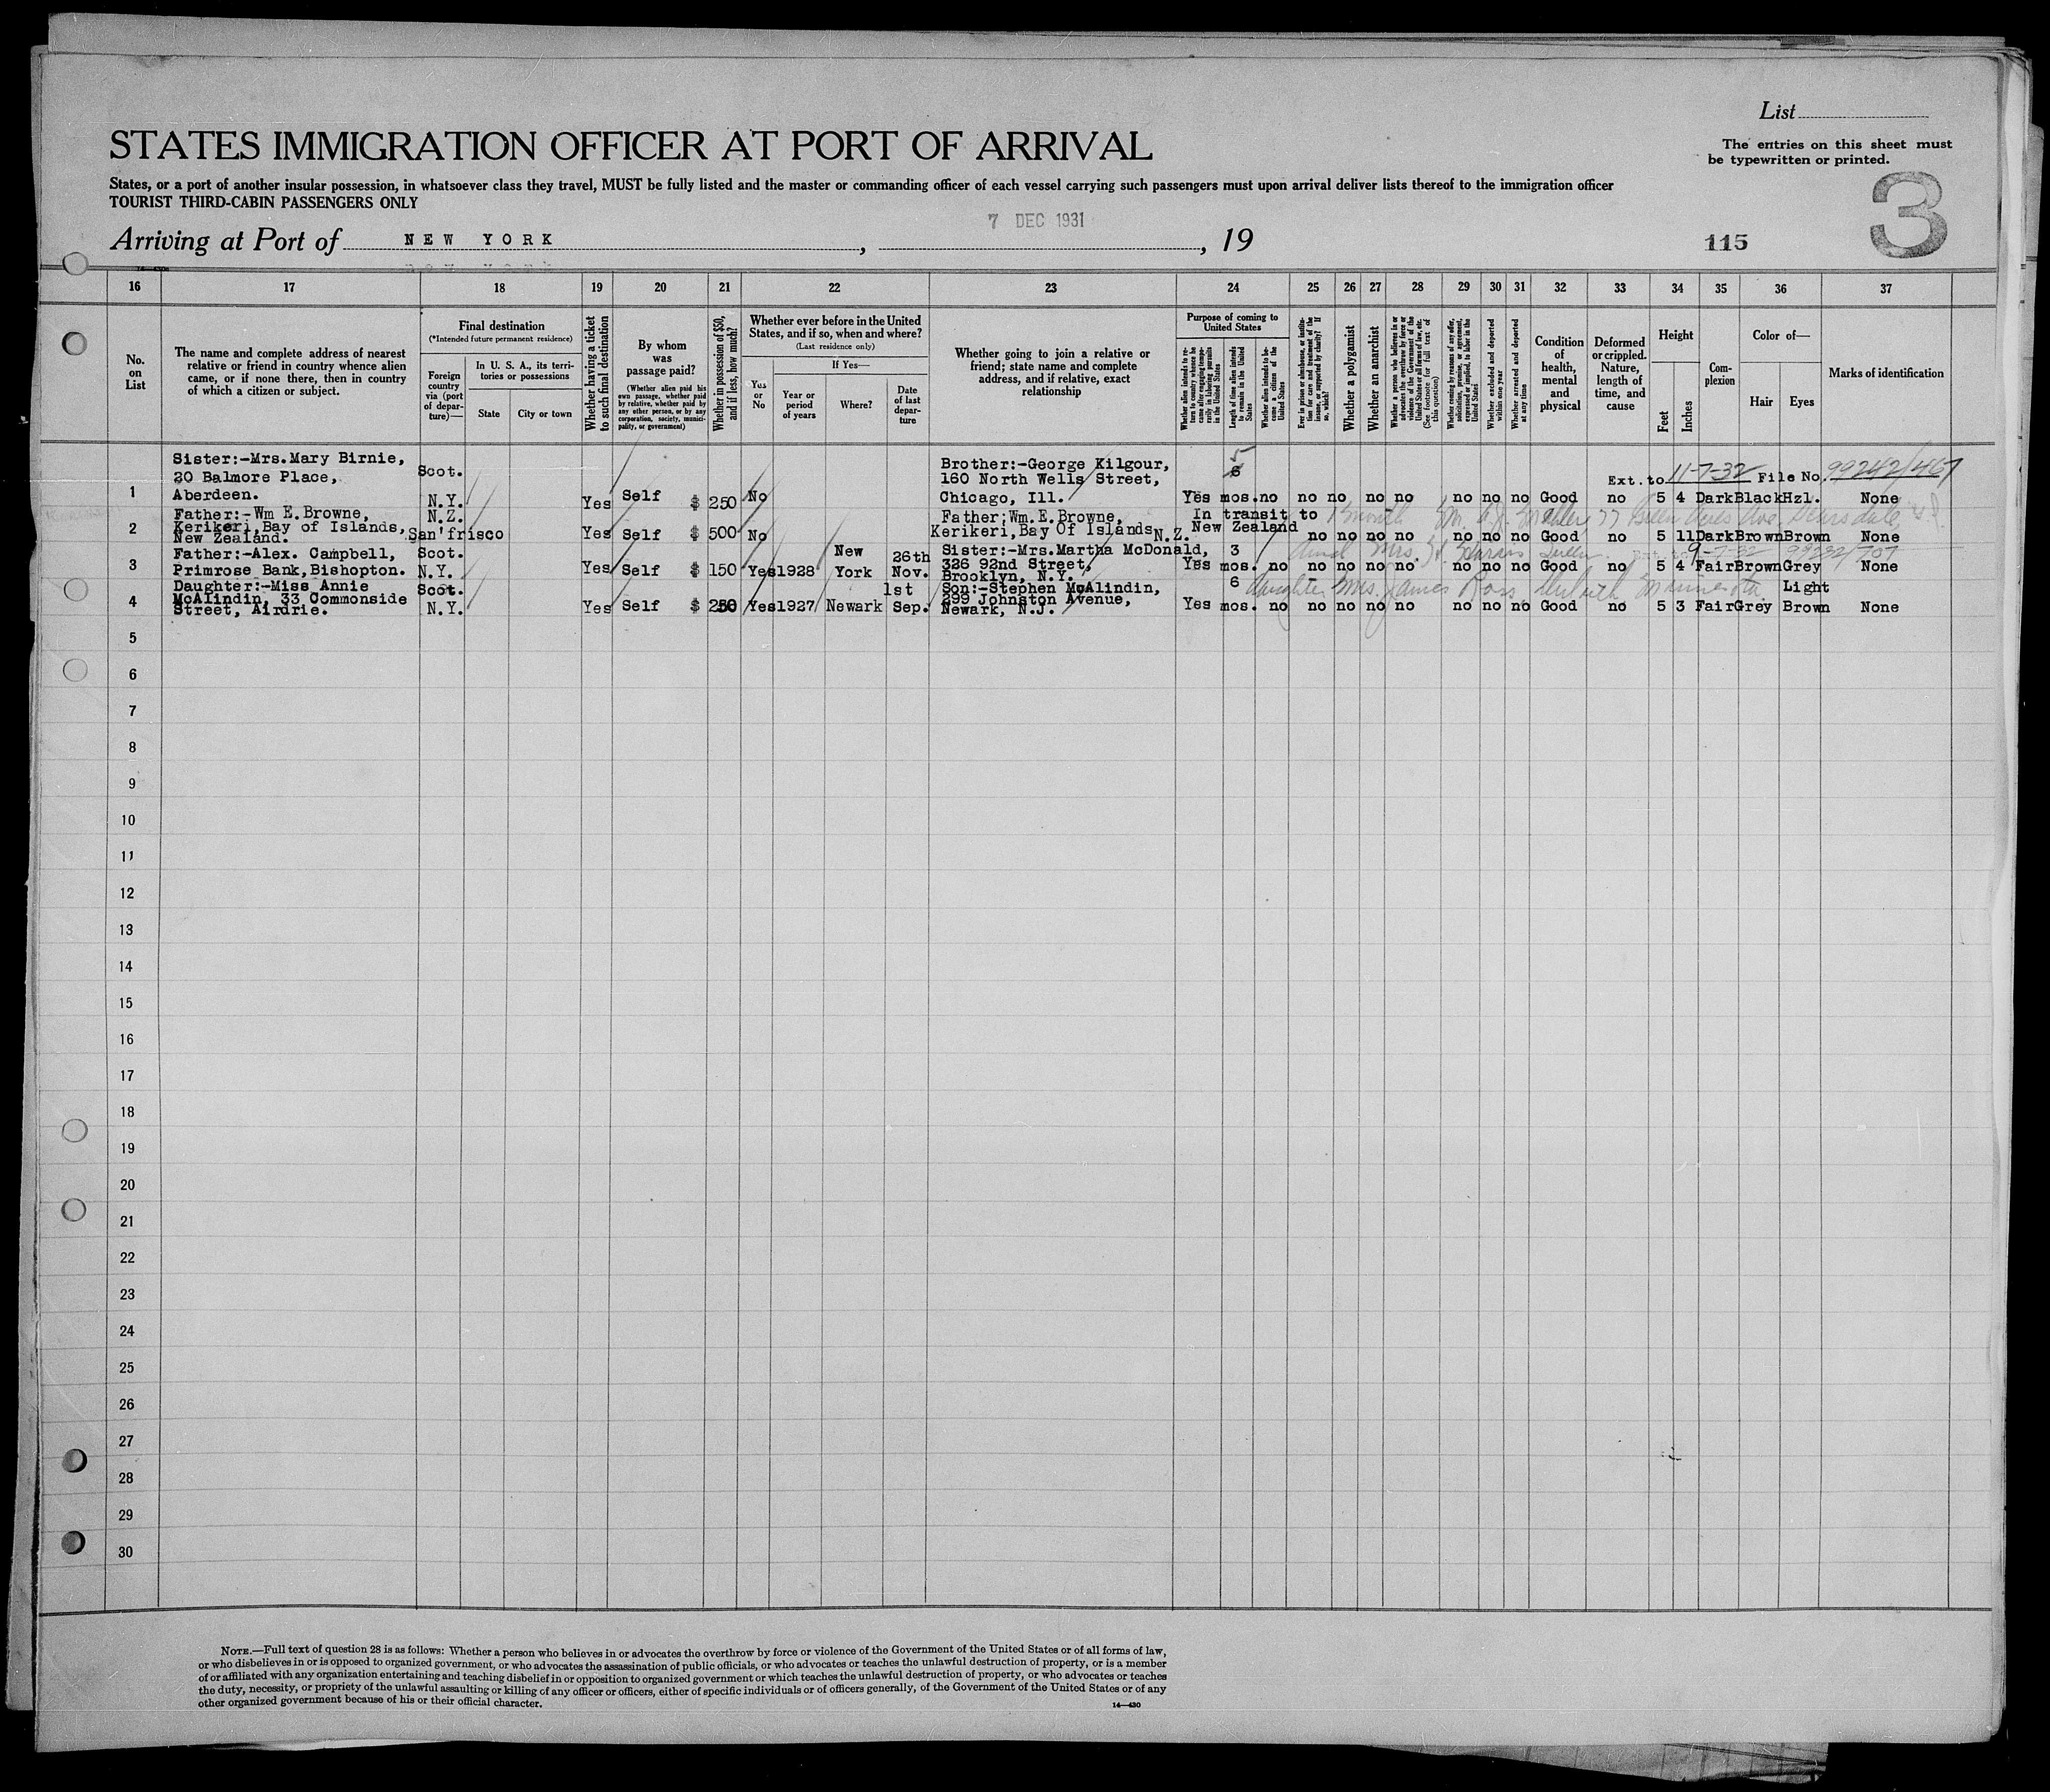 List
STATES IMMIGRATION OFFICER AT PORT OF ARRIVAL
The entries on this sheet must
be typewritten or printed.
States, or a port of another insular possession, in whatsoever class they travel, MUST be fully listed and the master or commanding officer of each vessel carrying such passengers must upon arrival deliver lists thereof to the immigration officer
TOURIST THIRD-CABIN PASSENGERS ONLY
3
7 DEC 1931
Arriving at Port of NEW YORK , , 19
115
16 17 18 19 20 21 22 23 24 25 26 27 28 29 30 31 32 33 34 35 36 37
No. on List
The name and complete address of nearest
relative or friend in country whence alien
came, or if none there, then in country
of which a citizen or subject.
Final destination
(*Intended future permanent residence)
Foreign country via (port of departure)—
In U. S. A., its territories or possessions
State
City or town
Whether having a ticket to such final destination
By whom was passage paid?
(Whether alien paid his own passage, whether paid by relative, whether paid by any other person, or by any corporation, society, municipality, or government)
Whether in possession of $50, and if less, how much?
Whether ever before in the United States, and if so, when and where?
(Last residence only)
Yes or No
If Yes—
Year or period of years
Where?
Date of last departure
Whether going to join a relative or
friend; state name and complete
address, and if relative, exact
relationship
Purpose of coming to United States
Whether alien intends to return to country whence he came after engaging temporarily in laboring pursuits in the United States
Length of time alien intends to remain in the United States
Whether alien intends to become a citizen of the United States
Ever in prison or almshouse, or institution for care and treatment of the insane, or supported by charity? If so, which?
Whether a polygamist
Whether an anarchist
Whether a person who believes in or advocates the overthrow by force or violence of the Government of the United States or all forms of law, etc. (See footnote for full text of this question)
Whether coming by reasons of any offer, solicitation, promise, or agreement, expressed or implied, to labor in the United States
Whether excluded and deported within one year
Whether arrested and deported at any time
Condition of health, mental and physical
Deformed or crippled. Nature, length of time, and cause
Height
Feet
Inches
Complexion
Color of—
Hair
Eyes
Marks of identification
Ext. to 11-7-32 File No. 99242/467
1 Sister:-Mrs.Mary Birnie,
20 Balmore Place,
Aberdeen.
Scot.
N.Y.
Yes Self $ 250 No
Brother:-George Kilgour,
160 North Wells Street,
Chicago, Ill.
5
Yes mos. no no no no no no no no Good no 5 4 Dark Black Hzl. None
2 Father:-Wm E.Browne,
Kerikeri,Bay of Islands,
New Zealand.
N.Z.
San'frisco
Yes Self $ 500 No
Father;Wm.E.Browne,
Kerikeri,Bay Of Islands N.Z.
In transit to
New Zealand
no no no no no no no no Good no 5 11 Dark Brown Brown None
3 Father:-Alex. Campbell,
Primrose Bank,Bishopton.
Scot.
N.Y.
Yes Self $ 150 Yes 1928 New York 26th Nov.
Sister:-Mrs.Martha McDonald,
326 92nd Street,
Brooklyn, N.Y.
3
Yes mos. no no no no no no no no Good no 5 4 Fair Brown Grey None
4 Daughter:-Miss Annie
McAlindin, 33 Commonside
Street, Airdrie.
Scot.
N.Y.
Yes Self $ 250 Yes 1927 Newark 1st Sep.
Son:-Stephen McAlindin,
299 Johnston Avenue,
Newark, N.J.
6
daughter Mrs. James Ross Duluth Minnesota
Yes mos. no no no no no no no no Good no 5 3 Fair Grey Light Brown None
5
6
7
8
9
10
11
12
13
14
15
16
17
18
19
20
21
22
23
24
25
26
27
28
29
30
NOTE.—Full text of question 28 is as follows: Whether a person who believes in or advocates the overthrow by force or violence of the Government of the United States or of all forms of law,
or who disbelieves in or is opposed to organized government, or who advocates the assassination of public officials, or who advocates or teaches the unlawful destruction of property, or is a member
of or affiliated with any organization entertaining and teaching disbelief in or opposition to organized government or which teaches the unlawful destruction of property, or who advocates or teaches
the duty, necessity, or propriety of the unlawful assaulting or killing of any officer or officers, either of specific individuals or of officers generally, of the Government of the United States or of any
other organized government because of his or their official character.
14—430